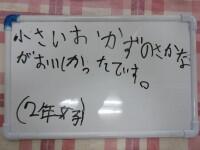 小さいおかずのさかな
がおいしかったです。
(2年女子)